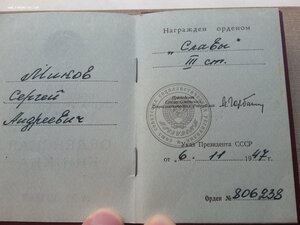 Миков
Сергей
Андреевич
Награжден орденом
„Славы"
III ст.
Президент
Указ Президента СССР
от „6" 11 1947 г.
Орден № 806238